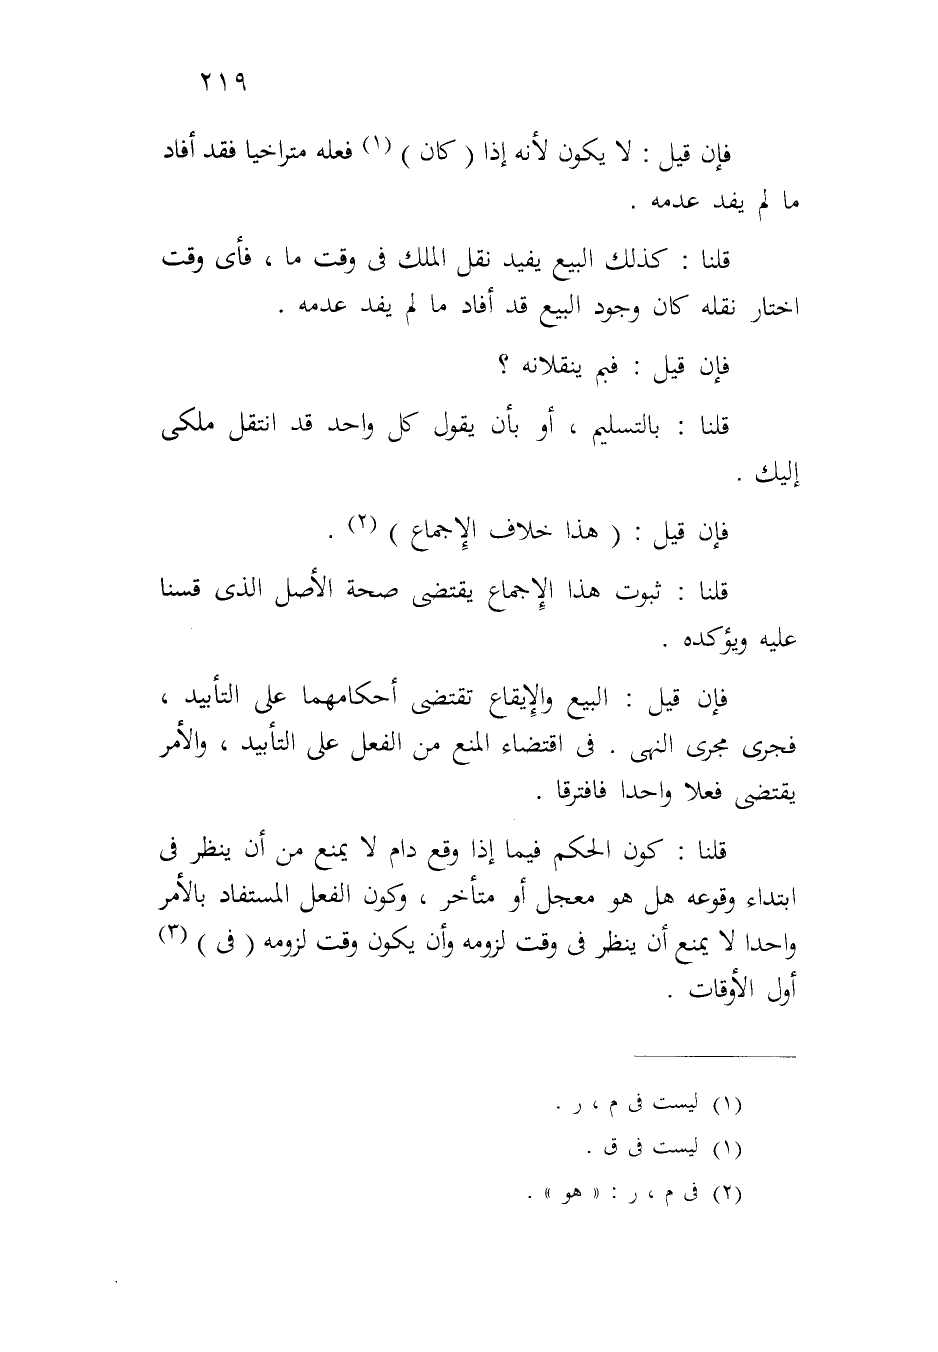 ٢١٩
فإن قيل : لا يكون لأنه إذا ( كان ) (١) فعله متراخيا فقد أفاد
ما لم يفد عدمه .
قلنا : كذلك البيع يفيد نقل الملك فى وقت ما ، فأى وقت
اختار نقله كان وجود البيع قد أفاد ما لم يفد عدمه .
فإن قيل : فبم ينقلانه ؟
قلنا : بالتسليم ، أو بأن يقول كل واحد قد انتقل ملكى
إليك .
فإن قيل : ( هذا خلاف الإجماع ) (٢) .
قلنا : ثبوت هذا الإجماع يقتضى صحة الأصل الذى قسنا
عليه ويؤكده .
فإن قيل : البيع والإيقاع تقتضى أحكامهما على التأبيد ،
فجرى مجرى النهى . فى اقتضاء المنع من الفعل على التأبيد ، والأمر
يقتضى فعلا واحدا فافترقا .
قلنا : كون الحكم فيما إذا وقع دام لا يمنع من أن ينظر فى
ابتداء وقوعه هل هو معجل أو متأخر ، وكون الفعل المستفاد بالأمر
واحدا لا يمنع أن ينظر فى وقت لزومه وأن يكون وقت لزومه ( فى ) (٣)
أول الأوقات .
(١) ليست فى م ، ر .
(١) ليست فى ق .
(٢) فى م ، ر : « هو » .